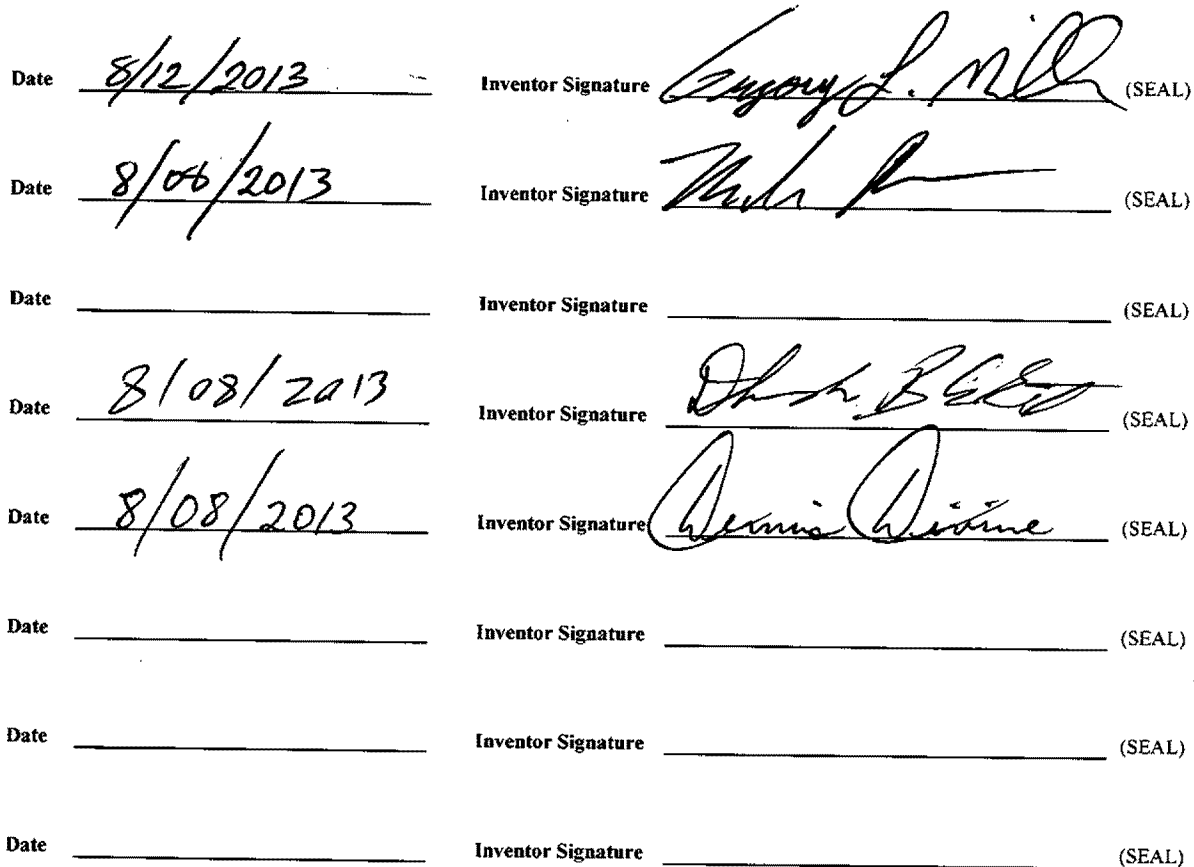 Date 8/12/2013 Inventor Signature Gregory L. Mill (SEAL)
Date 8/08/2013 Inventor Signature (SEAL)
Date Inventor Signature (SEAL)
Date 8/08/2013 Inventor Signature (SEAL)
Date 8/08/2013 Inventor Signature Dennis Divine (SEAL)
Date Inventor Signature (SEAL)
Date Inventor Signature (SEAL)
Date Inventor Signature (SEAL)